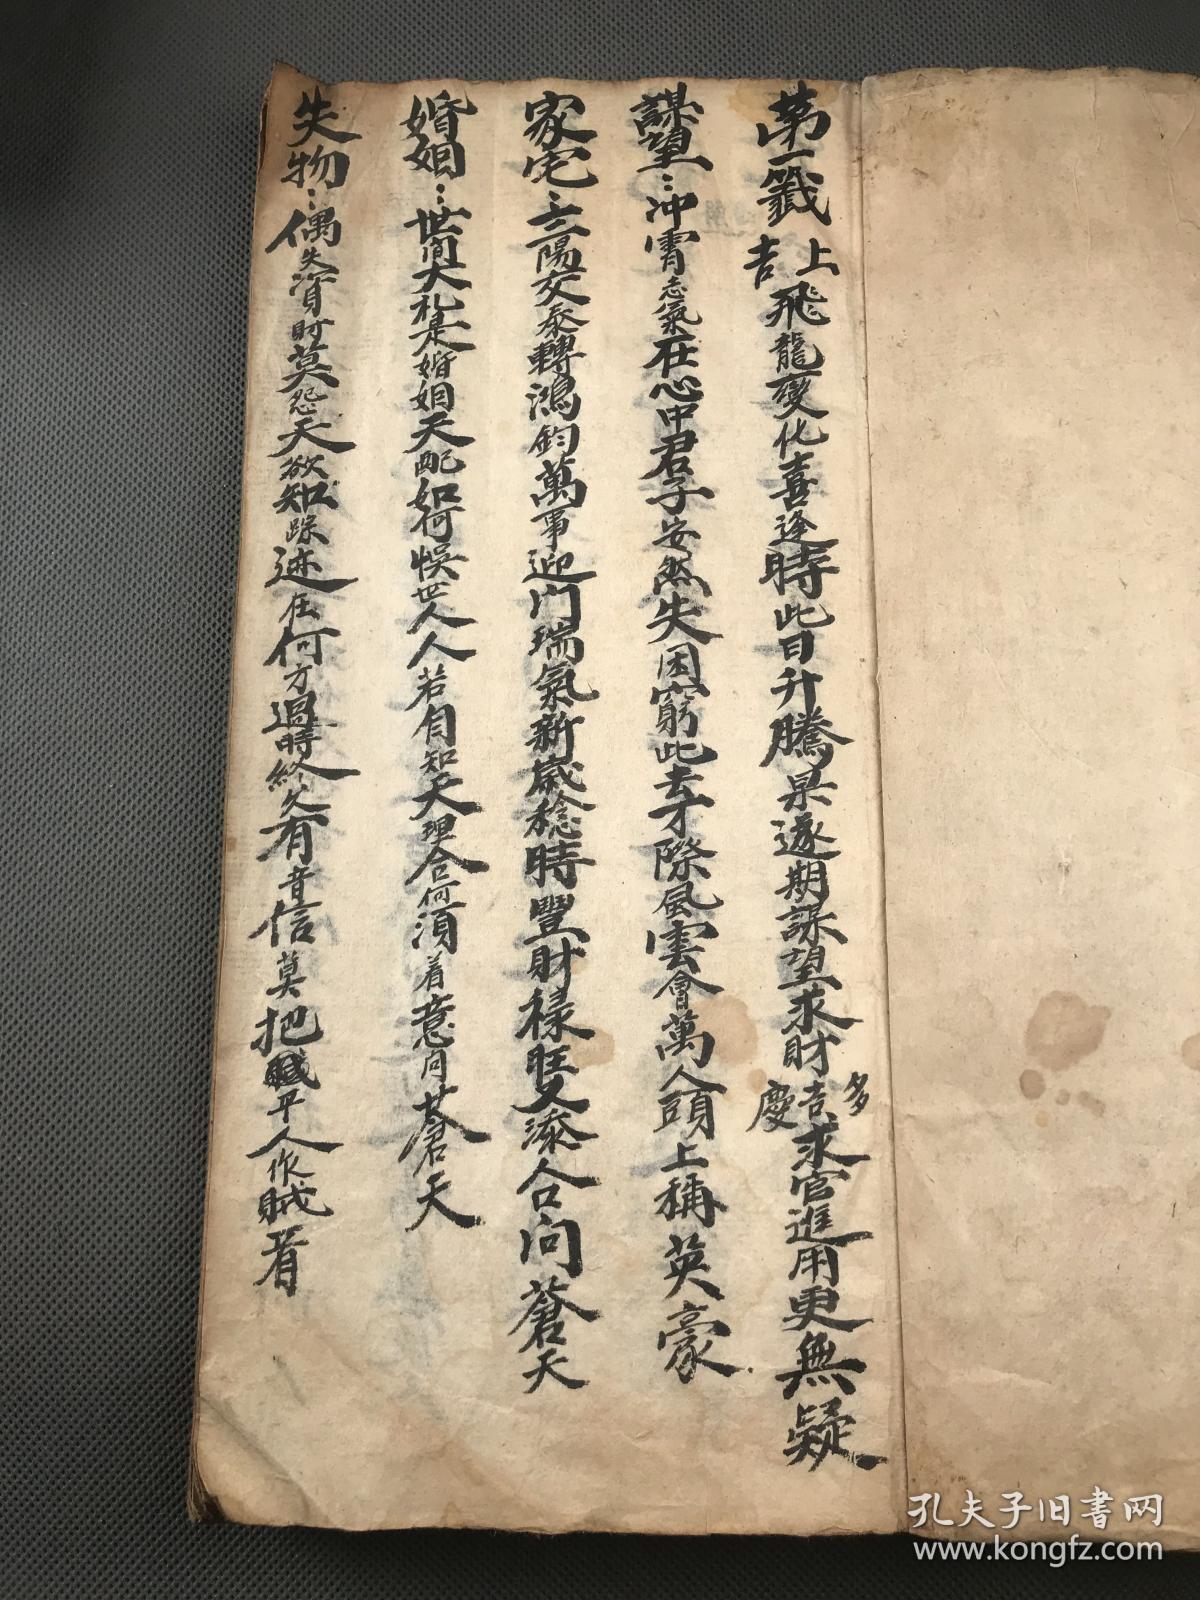 第一籤 上吉 飛龍變化喜逢時此日升騰果遂期謀望求財吉多慶求官進用更無疑
謀望：冲霄志氣在心中君子安然失困窮此去才際風雲會萬人頭上稱英豪
家宅：三陽交泰轉鴻鈞萬事迎門瑞氣新歲稔時豐財祿旺雙添人口向蒼天
婚姻：世间大礼是婚姻天配如何悞世人人若自知天理合何須着意问蒼天
失物：偶失資財莫怨天欲知踪迹在何方過時終久有音信莫把贓平人作賊看
孔夫子旧书网
www.kongfz.com